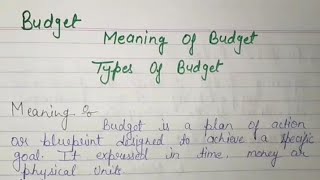 Budget
Meaning Of Budget
Types Of Budget
Meaning :-
Budget is a plan of action
or blueprint designed to achieve a specific
goal. It expressed in time, money or
physical units.